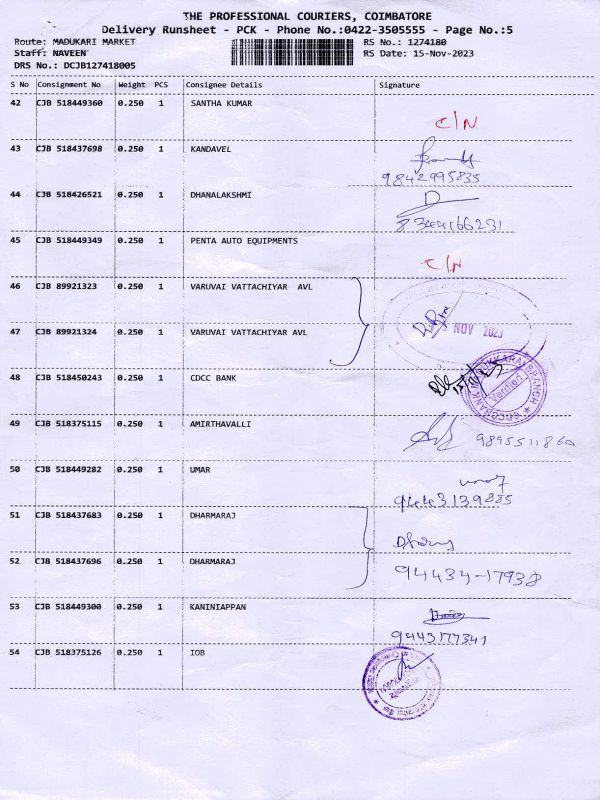 THE PROFESSIONAL COURIERS, COIMBATORE
Delivery Runsheet - PCK - Phone No.:0422-3505555 - Page No.:5
Route: MADUKARI MARKET RS No.: 1274180
Staff: NAVEEN RS Date: 15-Nov-2023
DRS No.: DCJB127418005
S No Consignment No Weight PCS Consignee Details Signature
42 CJB 518449360 0.250 1 SANTHA KUMAR
C/N
43 CJB 518437698 0.250 1 KANDAVEL
9842995835
44 CJB 518426521 0.250 1 DHANALAKSHMI
D
8344166231
45 CJB 518449349 0.250 1 PENTA AUTO EQUIPMENTS
C/N
46 CJB 89921323 0.250 1 VARUVAI VATTACHIYAR AVL
NOV 2023
47 CJB 89921324 0.250 1 VARUVAI VATTACHIYAR AVL
48 CJB 518450243 0.250 1 CDCC BANK
Verified
49 CJB 518375115 0.250 1 AMIRTHAVALLI
9895511860
50 CJB 518449282 0.250 1 UMAR
9443139885
51 CJB 518437683 0.250 1 DHARMARAJ
52 CJB 518437696 0.250 1 DHARMARAJ
94434-17938
53 CJB 518449300 0.250 1 KANINIAPPAN
9443177341
54 CJB 518375126 0.250 1 IOB